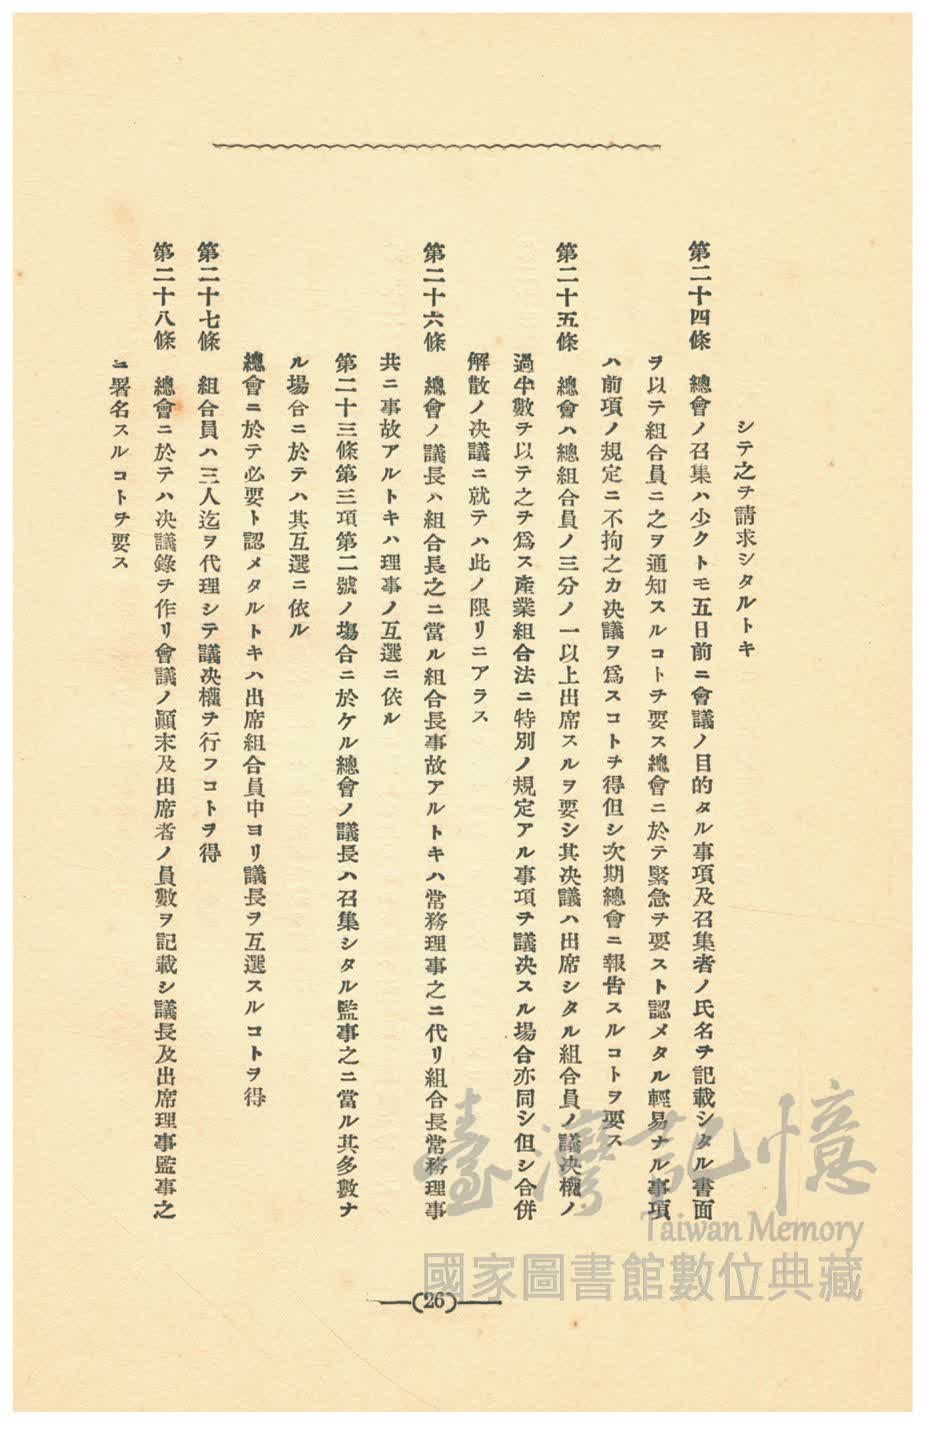 シテ之ヲ請求シタルトキ
第二十四條　總會ノ召集ハ少クトモ五日前ニ會議ノ目的タル事項及召集者ノ氏名ヲ記載シタル書面
ヲ以テ組合員ニ之ヲ通知スルコトヲ要ス總會ニ於テ緊急ヲ要スト認メタル輕易ナル事項
ハ前項ノ規定ニ不拘之カ決議ヲ爲スコトヲ得但シ次期總會ニ報告スルコトヲ要ス
第二十五條　總會ハ總組合員ノ三分ノ一以上出席スルヲ要シ其決議ハ出席シタル組合員ノ議決權ノ
過半數ヲ以テ之ヲ爲ス產業組合法ニ特別ノ規定アル事項ヲ議決スル場合亦同シ但シ合併
解散ノ決議ニ就テハ此ノ限リニアラス
第二十六條　總會ノ議長ハ組合長之ニ當ル組合長事故アルトキハ常務理事之ニ代リ組合長常務理事
共ニ事故アルトキハ理事ノ互選ニ依ル
第二十三條第三項第二號ノ塲合ニ於ケル總會ノ議長ハ召集シタル監事之ニ當ル其多數ナ
ル場合ニ於テハ其互選ニ依ル
總會ニ於テ必要ト認メタルトキハ出席組合員中ヨリ議長ヲ互選スルコトヲ得
第二十七條　組合員ハ三人迄ヲ代理シテ議決權ヲ行フコトヲ得
第二十八條　總會ニ於テハ決議錄ヲ作リ會議ノ顚末及出席者ノ員數ヲ記載シ議長及出席理事監事之
ニ署名スルコトヲ要ス
(26)
臺灣記憶
Taiwan Memory
國家圖書館數位典藏